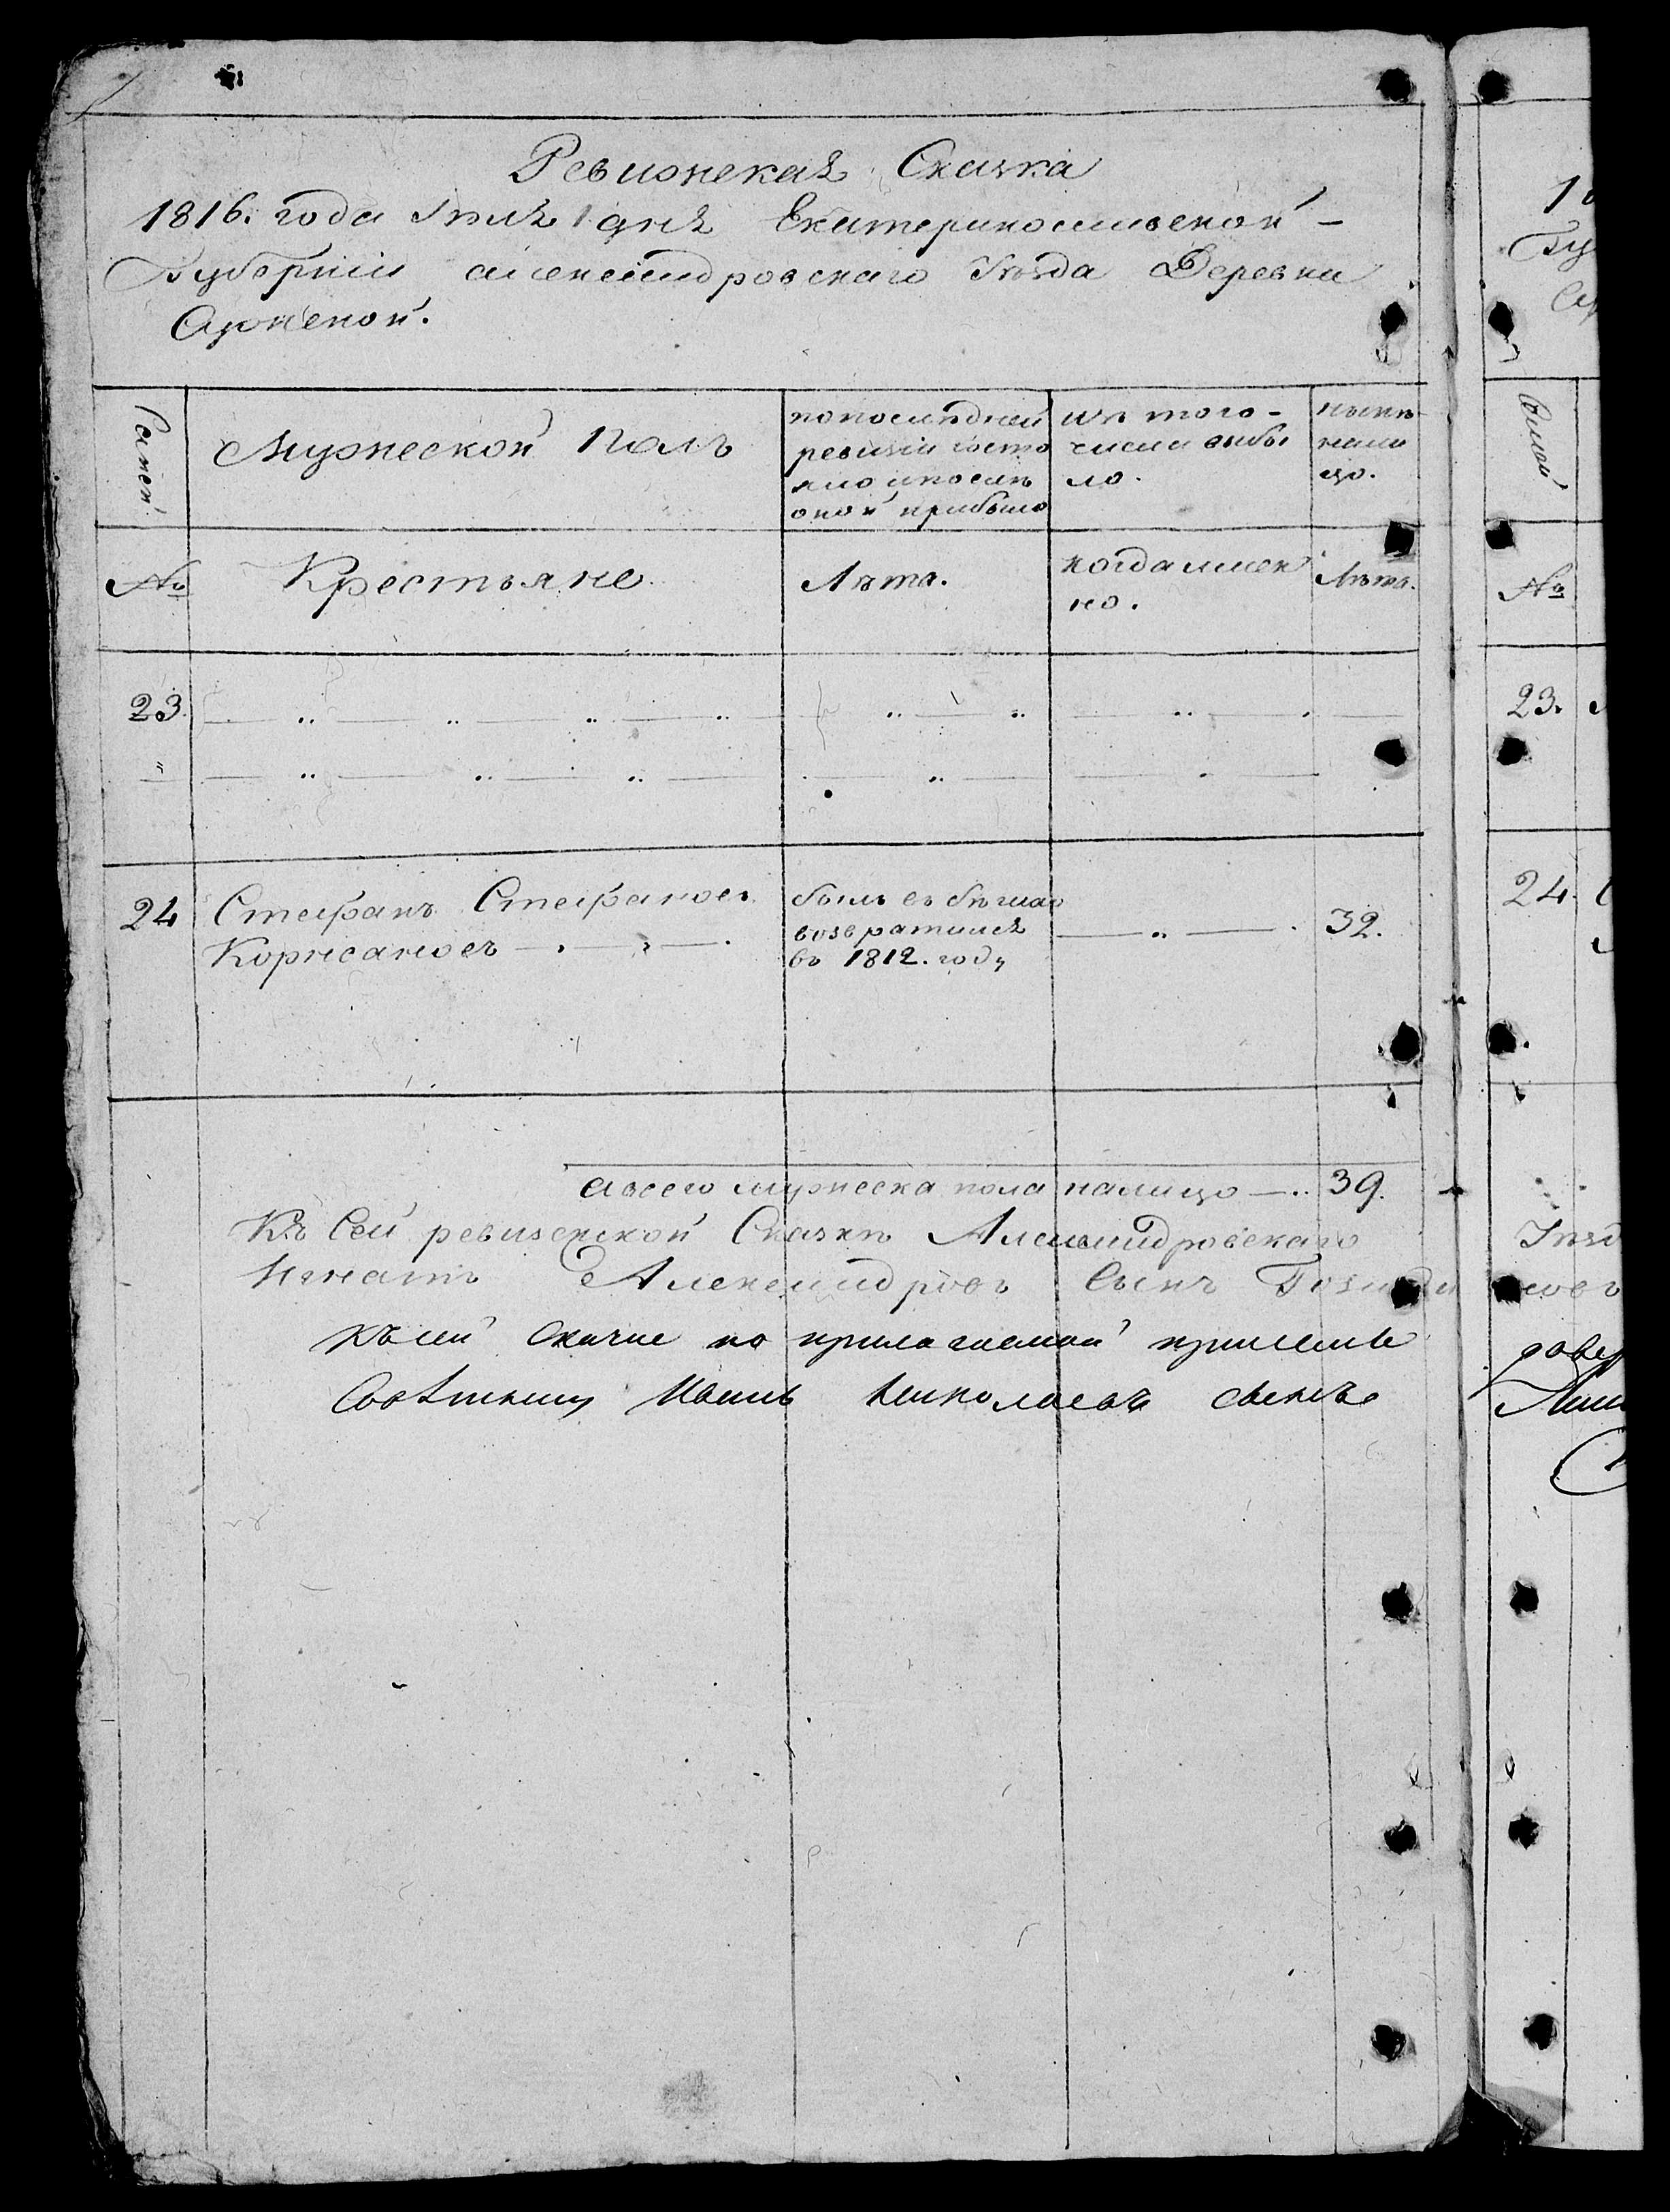 Ревизская Сказка
1816. года Iюля 1 дня Екатеринославской –
Губернiи александровскаго Уѣзда Деревни
Семей.
Мужеской Полъ
попоследней
ревизiи состо
яло ипослѣ
оной прибыло
изъ того –
числа выбы
ло.
нынѣ
нали
цо.
№
Крестьяне
Лѣта.
когда имен
но.
Лѣта.
№
23
23.
24
Стефанъ Стефановъ
Коржановъ
былъ въ бѣгахъ
возвратился
въ 1812. году
32.
24.
авсего мужеска пола налицо — .. 39.
Къ Сей ревизской Сказкѣ Александровскаго
Игнатъ Александровъ Сынъ
Къ сей скаске по прилагаемой
Иванъ Николаевъ сынъ